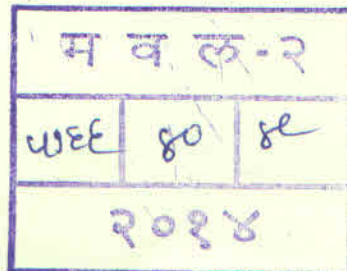 म व ल-२
७६६ ४० ४९
२०१४